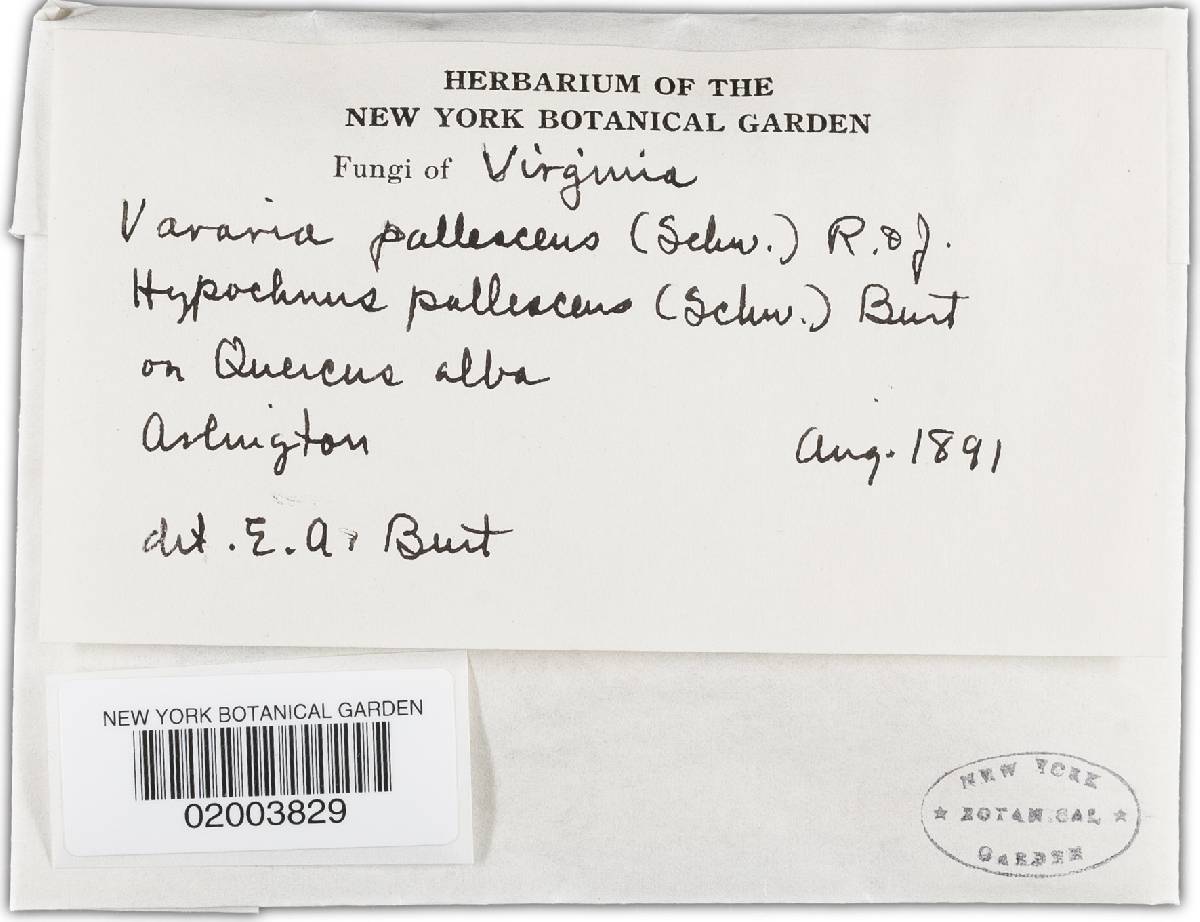 HERBARIUM OF THE
NEW YORK BOTANICAL GARDEN
Fungi of Virginia
Vararia pallescens (Schw.) R. & J.
Hypochnus pallescens (Schw.) Burt
on Quercus alba
Arlington Aug. 1891
det. E. A. Burt
NEW YORK BOTANICAL GARDEN
02003829
NEW YORK
★ BOTANICAL ★
GARDEN